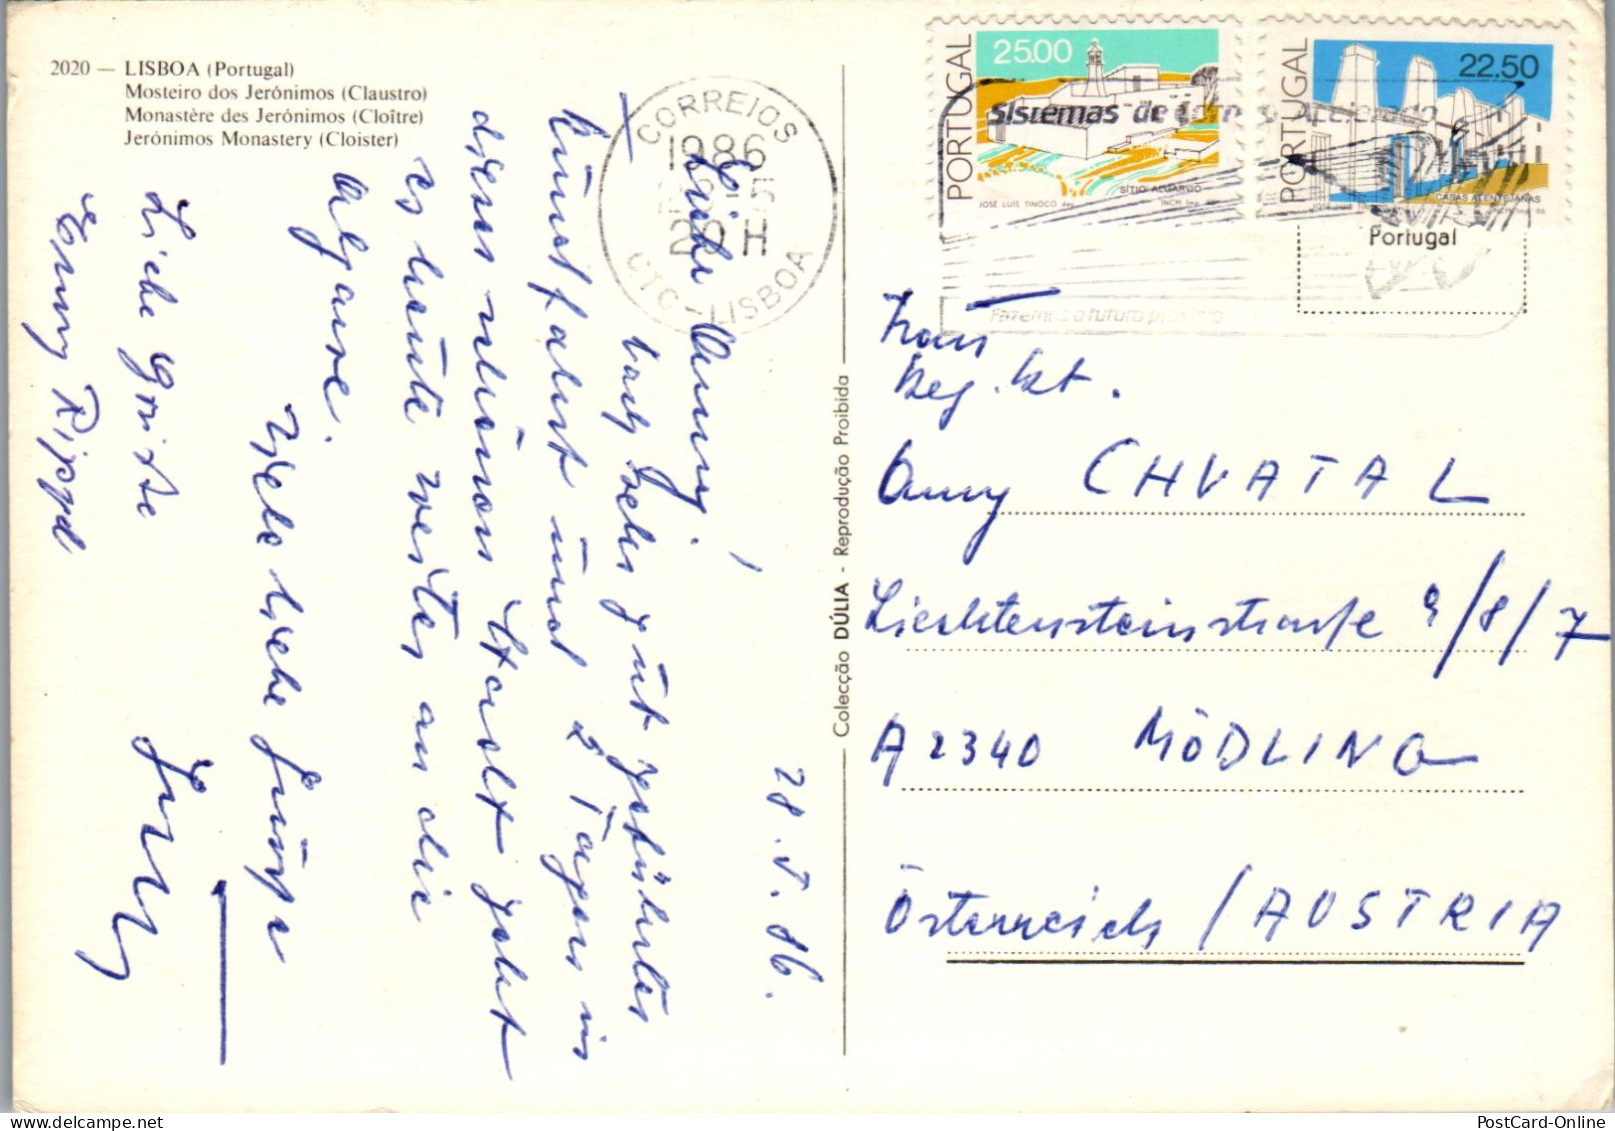 2020 — LISBOA (Portugal)
Mosteiro dos Jerónimos (Claustro)
Monastère des Jerónimos (Cloître)
Jerónimos Monastery (Cloister)
CORREIOS
1986
20 H
CTC - LISBOA
PORTUGAL
25.00
SÍTIO ALGARVIO
JOSÉ LUIS TINOCO des.
INCM, Imp.
PORTUGAL
22.50
CASAS ALENTEJANAS
Sistemas de
Fazemos o futuro
Portugal
28. 5. 86.
Liebe Anny!
Nach sehr gut
Kunstfahrt und 2 Tagen in
dieser schönen Stadt geht
es heute weiter an die
Algarve.
Viele liebe Grüße
Liebe Grüße
Emmy Rippel
Colecção DÚLIA - Reprodução Proibida
Frau
Reg. Rt.
Anny CHVATAL
Liechtensteinstraße 9/8/7
A 2340 MÖDLING
Österreich / AUSTRIA
PostCard-Online